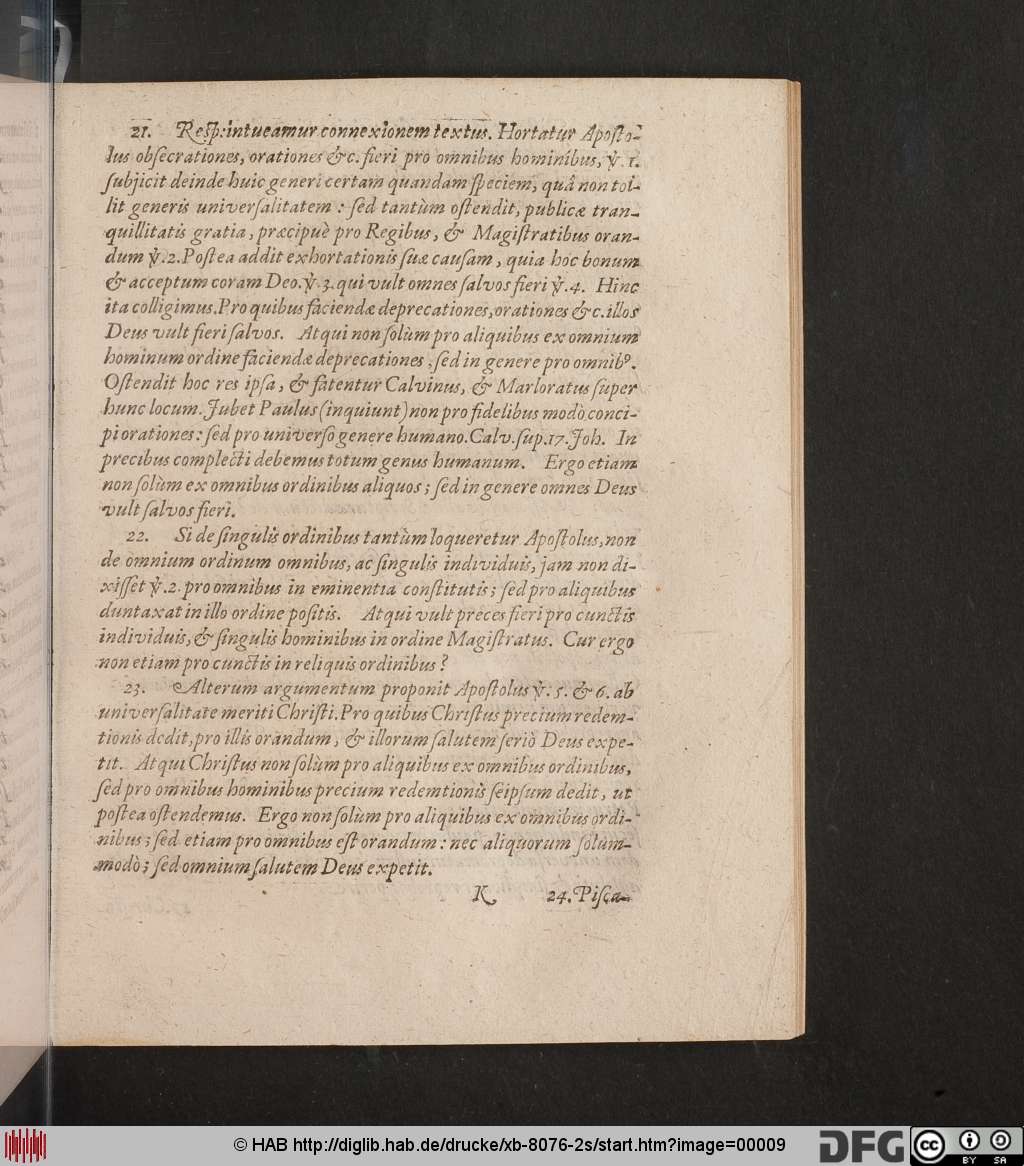 21. Resp: intueamur connexionem textus. Hortatur Aposto-
lus obsecrationes, orationes &c. fieri pro omnibus hominibus, ꝟ. 1.
subjicit deinde huic generi certam quandam speciem, quâ non tol-
lit generis universalitatem : sed tantùm ostendit, publicæ tran-
quillitatis gratia, præcipuè pro Regibus, & Magistratibus oran-
dum ꝟ. 2. Postea addit exhortationis suæ causam, quia hoc bonum
& acceptum coram Deo. ꝟ. 3. qui vult omnes salvos fieri ꝟ. 4. Hinc
ita colligimus. Pro quibus faciendæ deprecationes, orationes &c. illos
Deus vult fieri salvos. Atqui non solùm pro aliquibus ex omnium
hominum ordine faciendæ deprecationes, sed in genere pro omnibꝰ.
Ostendit hoc res ipsa, & fatentur Calvinus, & Marloratus super
hunc locum. Jubet Paulus (inquiunt) non pro fidelibus modò conci-
pi orationes: sed pro universo genere humano. Calv. sup. 17. Joh. In
precibus complecti debemus totum genus humanum. Ergo etiam
non solùm ex omnibus ordinibus aliquos; sed in genere omnes Deus
vult salvos fieri.
22. Si de singulis ordinibus tantùm loqueretur Apostolus, non
de omnium ordinum omnibus, ac singulis individuis, jam non di-
xisset ꝟ. 2. pro omnibus in eminentia constitutis; sed pro aliquibus
duntaxat in illo ordine positis. Atqui vult preces fieri pro cunctis
individuis, & singulis hominibus in ordine Magistratus. Cur ergo
non etiam pro cunctis in reliquis ordinibus?
23. Alterum argumentum proponit Apostolus ꝟ. 5. & 6. ab
universalitate meriti Christi. Pro quibus Christus precium redem-
tionis dedit, pro illis orandum, & illorum salutem seriò Deus expe-
tit. Atqui Christus non solùm pro aliquibus ex omnibus ordinibus,
sed pro omnibus hominibus precium redemtionis seipsum dedit, ut
postea ostendemus. Ergo non solùm pro aliquibus ex omnibus ordi-
nibus; sed etiam pro omnibus est orandum: nec aliquorum solùm-
modò; sed omnium salutem Deus expetit.
K 24. Pisca-
© HAB http://diglib.hab.de/drucke/xb-8076-2s/start.htm?image=00009
DFG cc BY SA